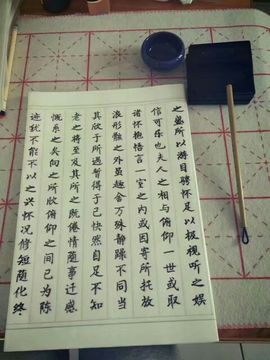 之盛所以游目骋怀足以极视听之娱
信可乐也夫人之相与俯仰一世或取
诸怀抱悟言一室之内或因寄所托放
浪形骸之外虽趣舍万殊静躁不同当
其欣于所遇暂得于己快然自足不知
老之将至及其所之既倦情随事迁感
慨系之矣向之所欣俯仰之间已为陈
迹犹不能不以之兴怀况修短随化终